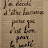 J'ai décidé
d'être heureux
parce que
c'est bon
pour
la santé